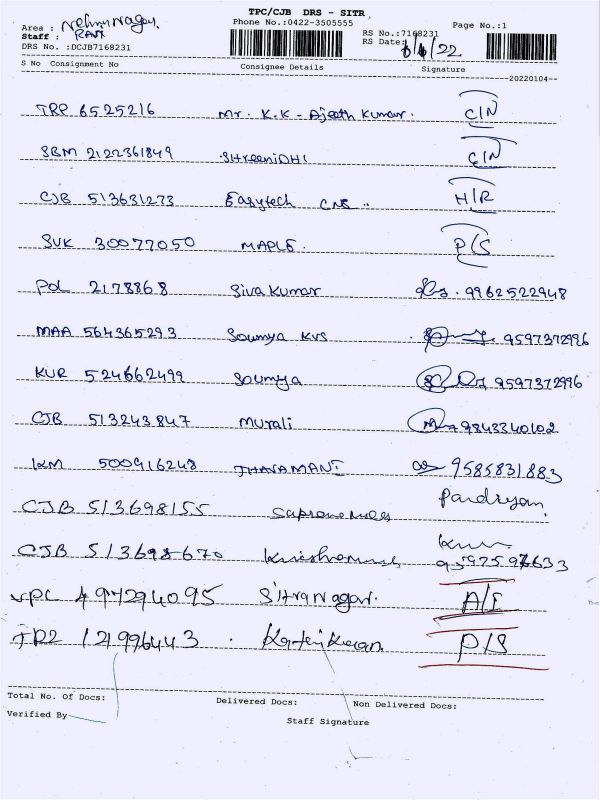 TPC/CJB DRS - SITR
Area : Nehru Nagar Phone No.:0422-3505555 Page No.:1
Staff : RAVI RS No.:7168231
DRS No. :DCJB7168231 RS Date: /22
S No Consignment No Consignee Details Signature
20220104
TRP 6525216 Mr. K.K - Ajeeth Kumar. C/N
SBM 2122361849 ShreeniDHI C/N
CJB 513631273 Easytech CNS .. H/R
SVK 30077050 MAPLE. P/S
POL 2178868 Siva Kumar 9962522948
MAA 564365293 Soumya KVS 9597372996
KUR 524662499 Soumya 9597372996
CJB 513243847 Murali 9843340102
KM 500916248 THAVAMANI 9585831883
CJB 513698155 Pandiyan
CJB 513698670
497294095 Sitra nagar. A/I
121996443 P/S
Total No. Of Docs: Delivered Docs: Non Delivered Docs:
Verified By Staff Signature